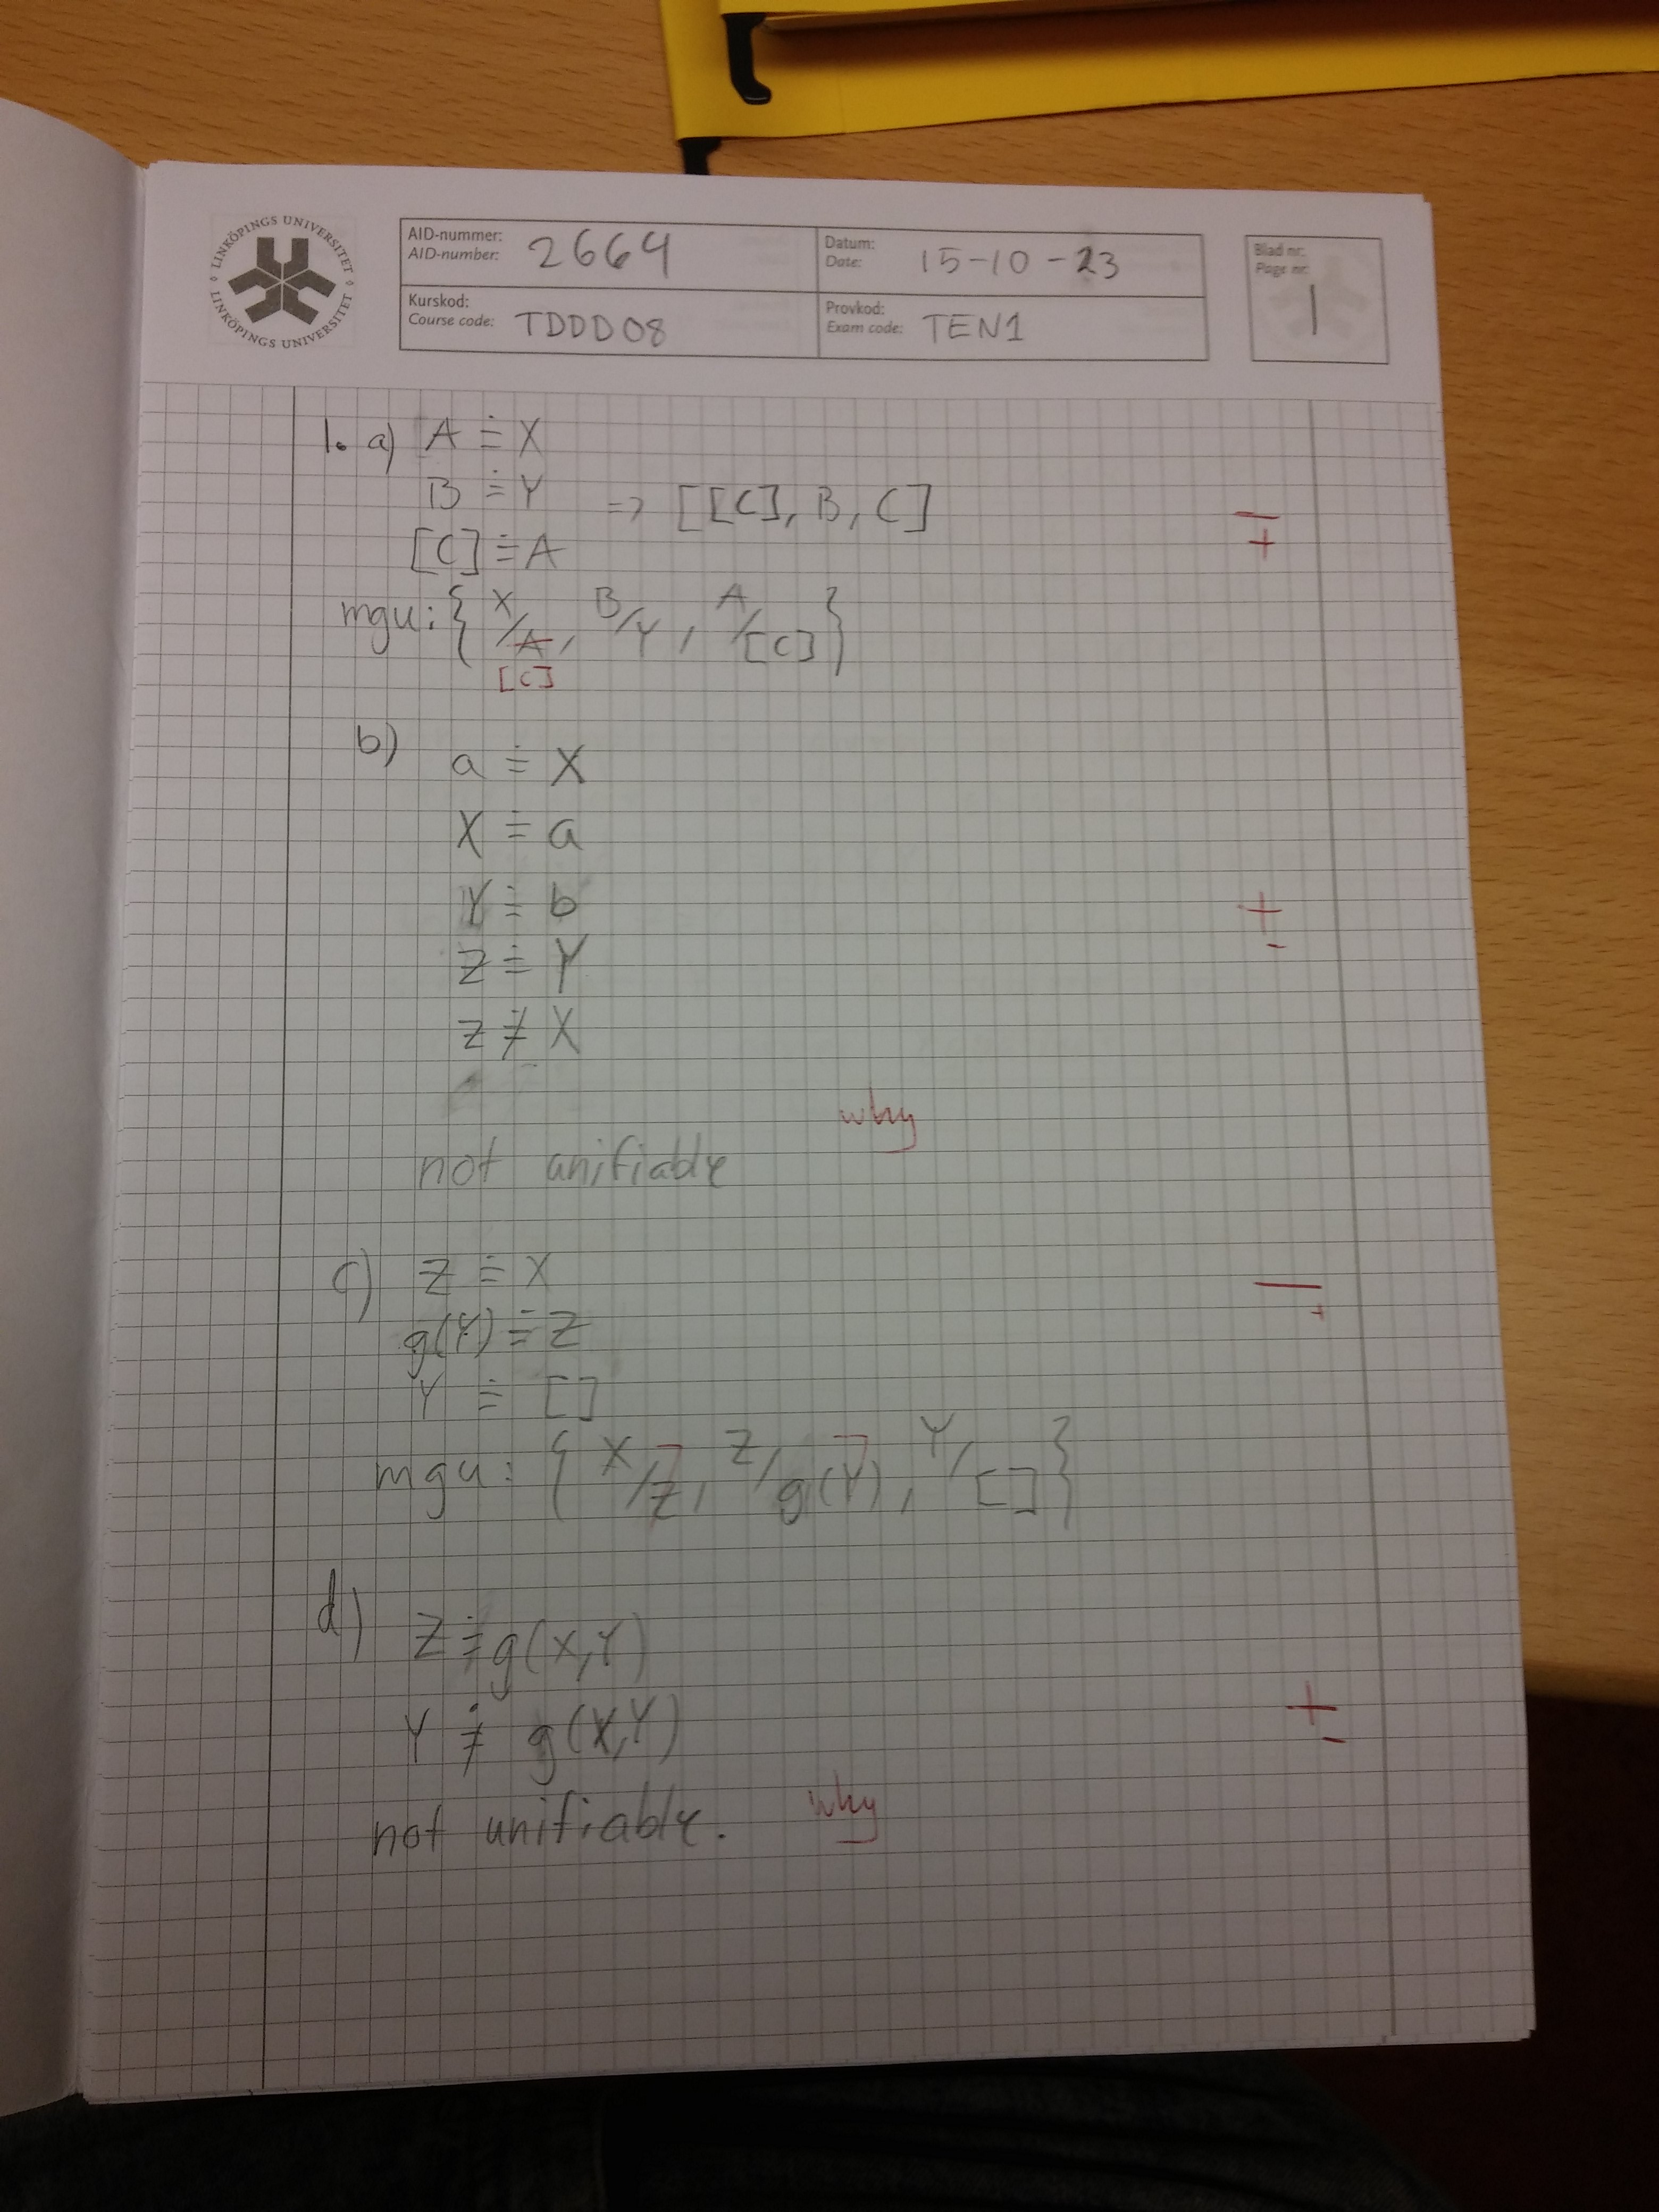 LINKÖPINGS UNIVERSITET
LINKÖPINGS UNIVERSITET
AID-nummer:
AID-number: 2664
Datum:
Date: 15-10-23
Blad nr:
Page nr:
1
Kurskod:
Course code: TDDD08
Provkod:
Exam code: TEN1
1. a) A ≐ X
B ≐ Y => [[C], B, C]
[C] ≐ A
mgu: { X/A, B/Y, A/[C] }
[C]
b) a ≐ X
X ≐ a
Y ≐ b
Z ≐ Y
Z ≠ X
why
not unifiable
c) Z ≐ X
g(Y) ≐ Z
Y ≐ []
mgu: { X/Z, Z/g(Y), Y/[] }
d) Z ≐ g(X,Y)
Y ≠ g(X,Y)
not unifiable. why